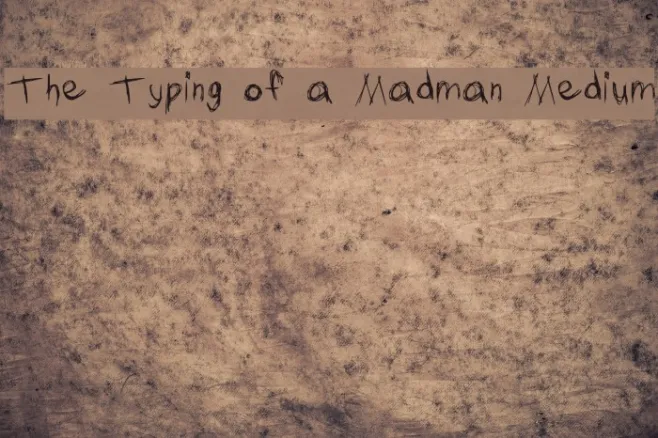 The Typing of a Madman Medium